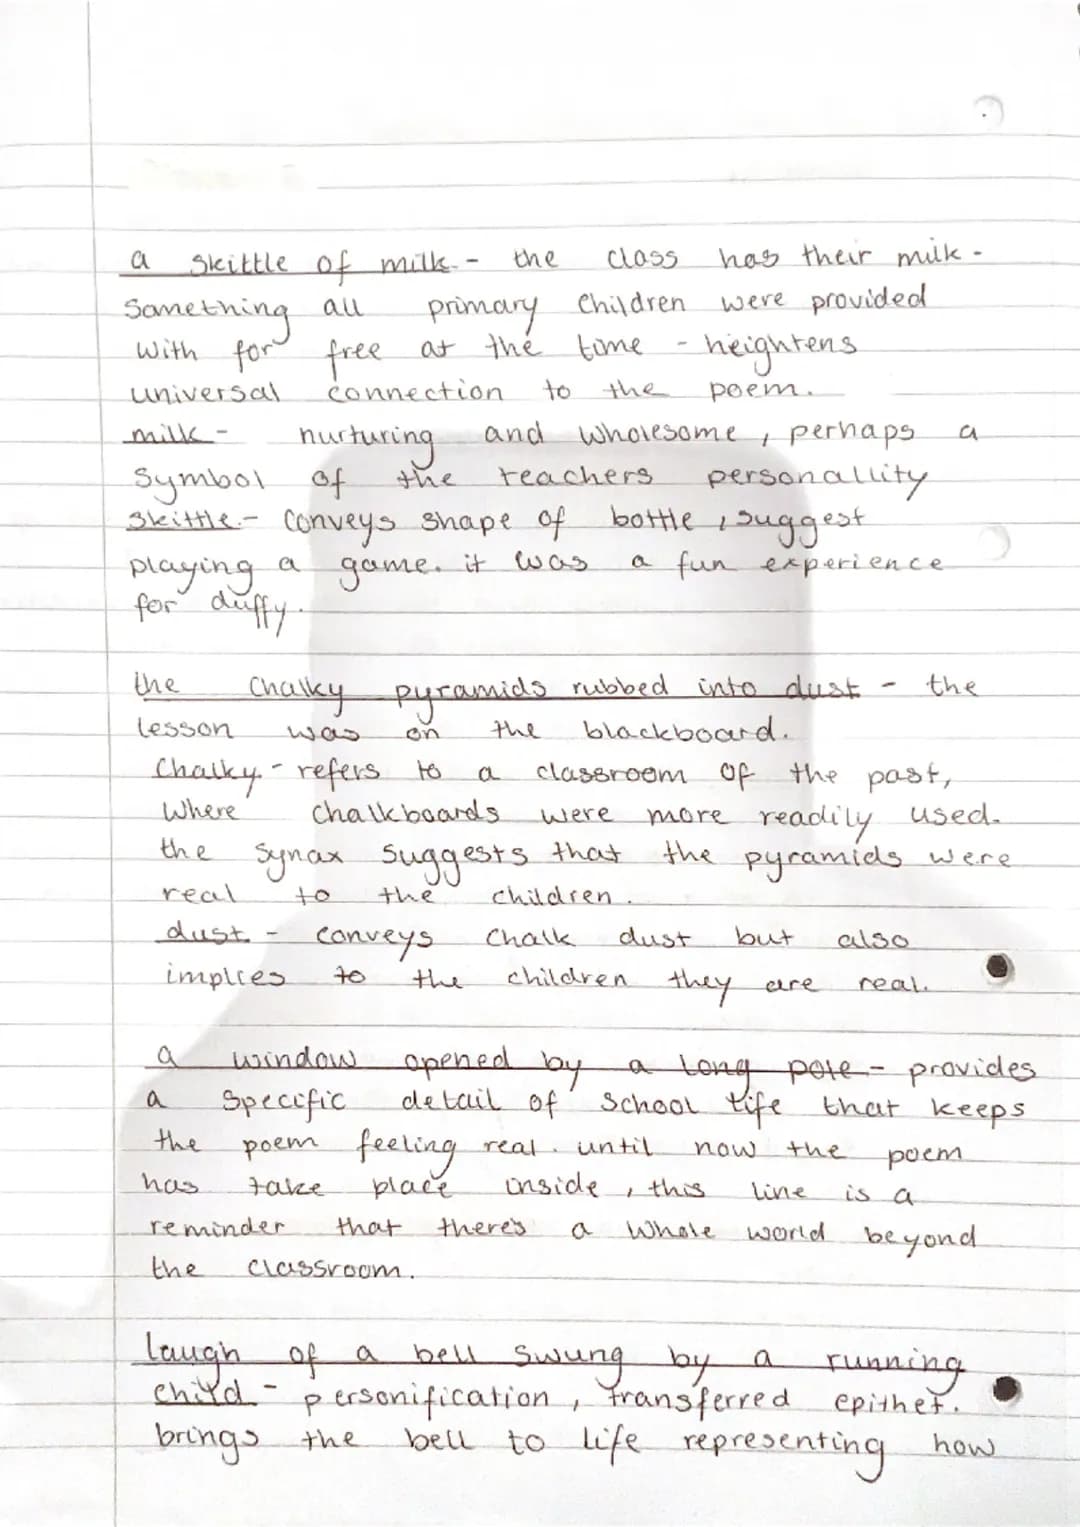 a skittle of milk - the class has their milk -
Something all primary children were provided
with for free at the time - heightens
universal connection to the poem.
milk - nurturing and wholesome, perhaps a
symbol of the teachers personallity
skittle - conveys shape of bottle, suggest
playing a game. it was a fun experience
for duffy.
the chalky pyramids rubbed into dust - the
lesson was on the blackboard.
Chalky - refers to a classroom of the past,
where chalkboards were more readily used.
the synax suggests that the pyramids were
real to the children.
dust - conveys chalk dust but also
implies to the children they are real.
a window opened by a long pole - provides
a specific detail of school life that keeps
the poem feeling real. until now the poem
has take place inside, this line is a
reminder that there's a whole world beyond
the classroom.
laugh of a bell swung by a running
child - personification, transferred epithet.
brings the bell to life representing how